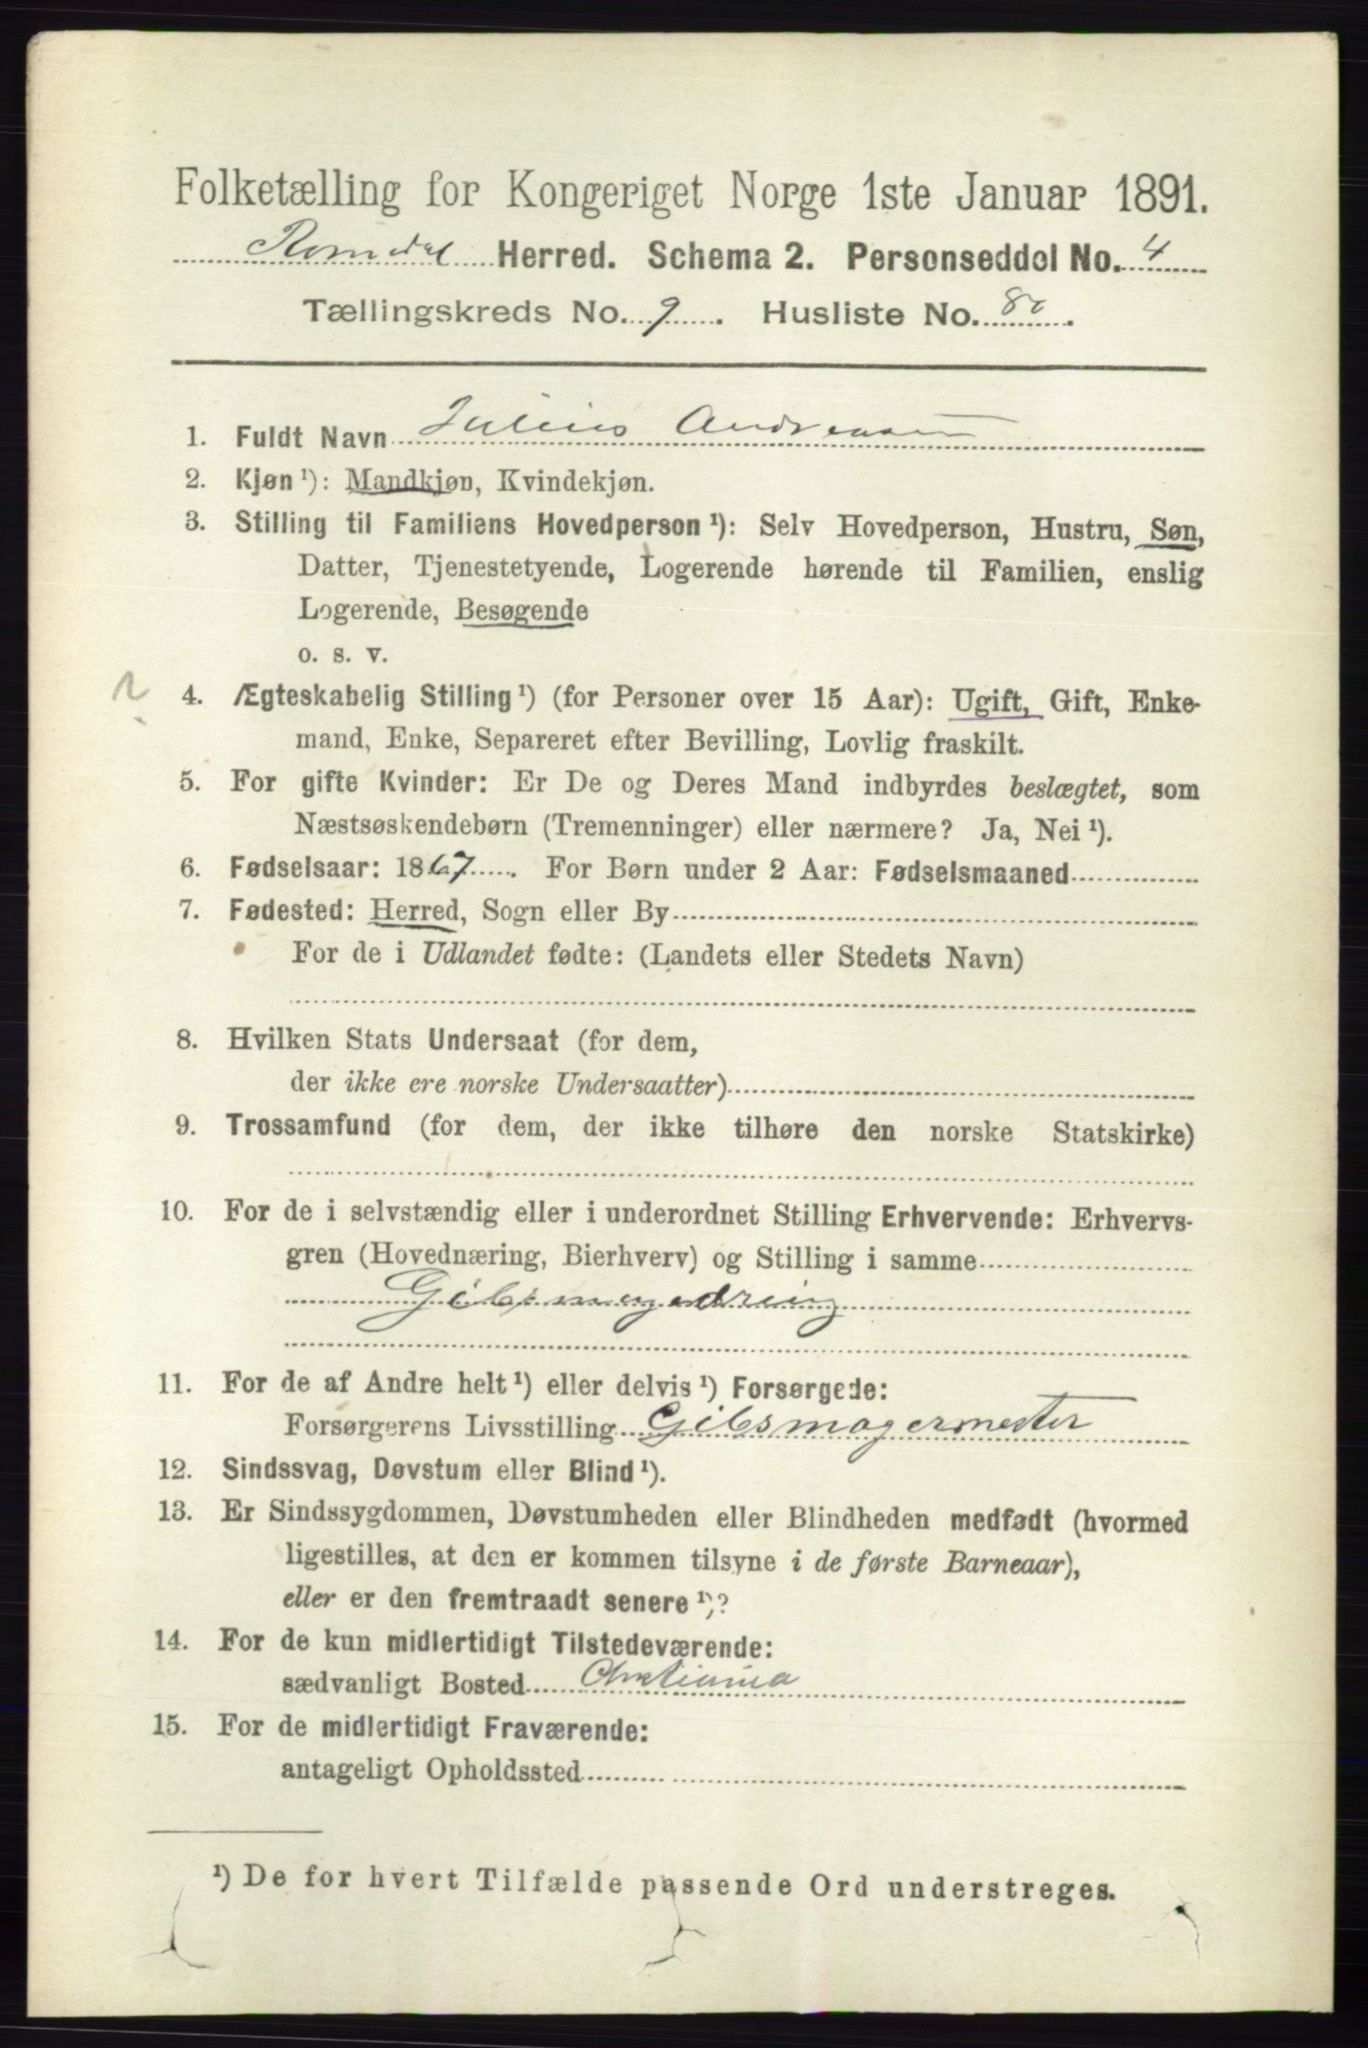 Folketælling for Kongeriget Norge 1ste Januar 1891.
Romedal Herred. Schema 2. Personseddel No. 4
Tællingskreds No. 9. Husliste No. 80.
1. Fuldt Navn Julius Andreasen
2. Kjøn ¹): Mandkjøn, Kvindekjøn.
3. Stilling til Familiens Hovedperson ¹): Selv Hovedperson, Hustru, Søn,
Datter, Tjenestetyende, Logerende hørende til Familien, enslig
Logerende, Besøgende
o. s. v.
4. Ægteskabelig Stilling ¹) (for Personer over 15 Aar): Ugift, Gift, Enke-
mand, Enke, Separeret efter Bevilling, Lovlig fraskilt.
5. For gifte Kvinder: Er De og Deres Mand indbyrdes beslægtet, som
Næstsøskendebørn (Tremenninger) eller nærmere? Ja, Nei ¹).
6. Fødselsaar: 1867. For Børn under 2 Aar: Fødselsmaaned
7. Fødested: Herred, Sogn eller By
For de i Udlandet fødte: (Landets eller Stedets Navn)
8. Hvilken Stats Undersaat (for dem,
der ikke ere norske Undersaatter)
9. Trossamfund (for dem, der ikke tilhøre den norske Statskirke)
10. For de i selvstændig eller i underordnet Stilling Erhvervende: Erhvervs-
gren (Hovednæring, Bierhverv) og Stilling i samme
11. For de af Andre helt ¹) eller delvis ¹) Forsørgede:
Forsørgerens Livsstilling Gibsmagermester
12. Sindssvag, Døvstum eller Blind ¹).
13. Er Sindssygdommen, Døvstumheden eller Blindheden medfødt (hvormed
ligestilles, at den er kommen tilsyne i de første Barneaar),
eller er den fremtraadt senere ¹)?
14. For de kun midlertidigt Tilstedeværende:
sædvanligt Bosted Christiania
15. For de midlertidigt Fraværende:
antageligt Opholdssted
¹) De for hvert Tilfælde passende Ord understreges.